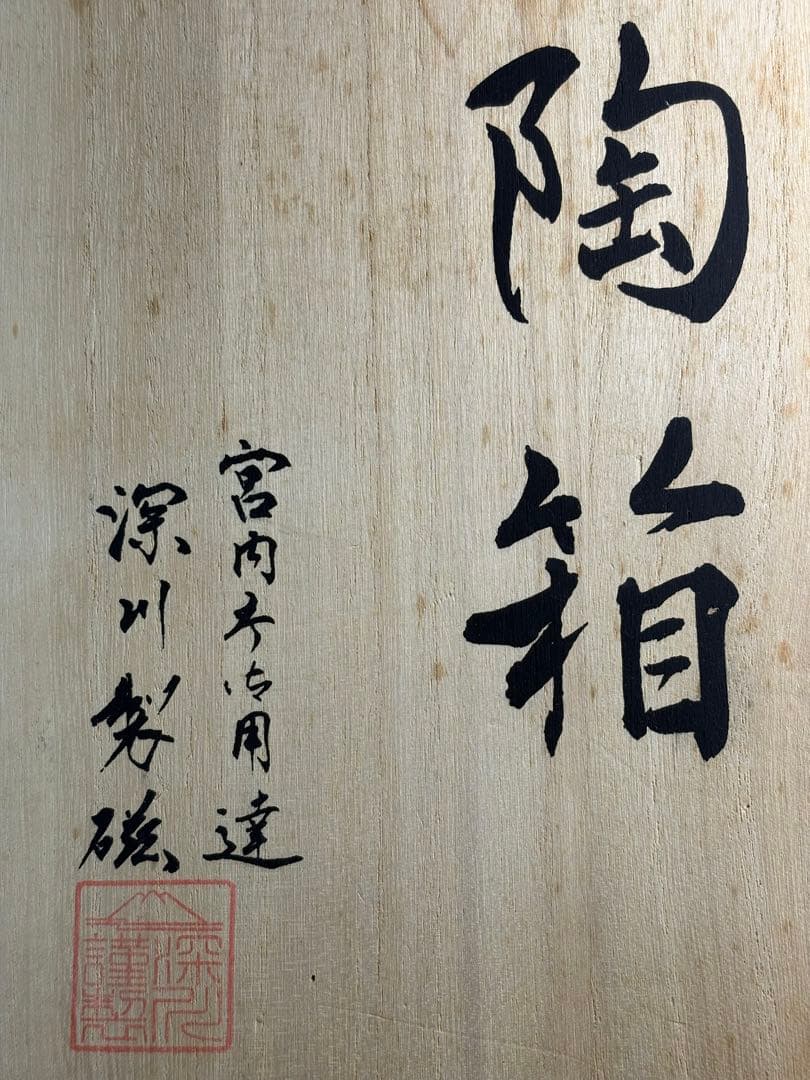 陶箱
宮内庁御用達
深川製磁
深川
謹製